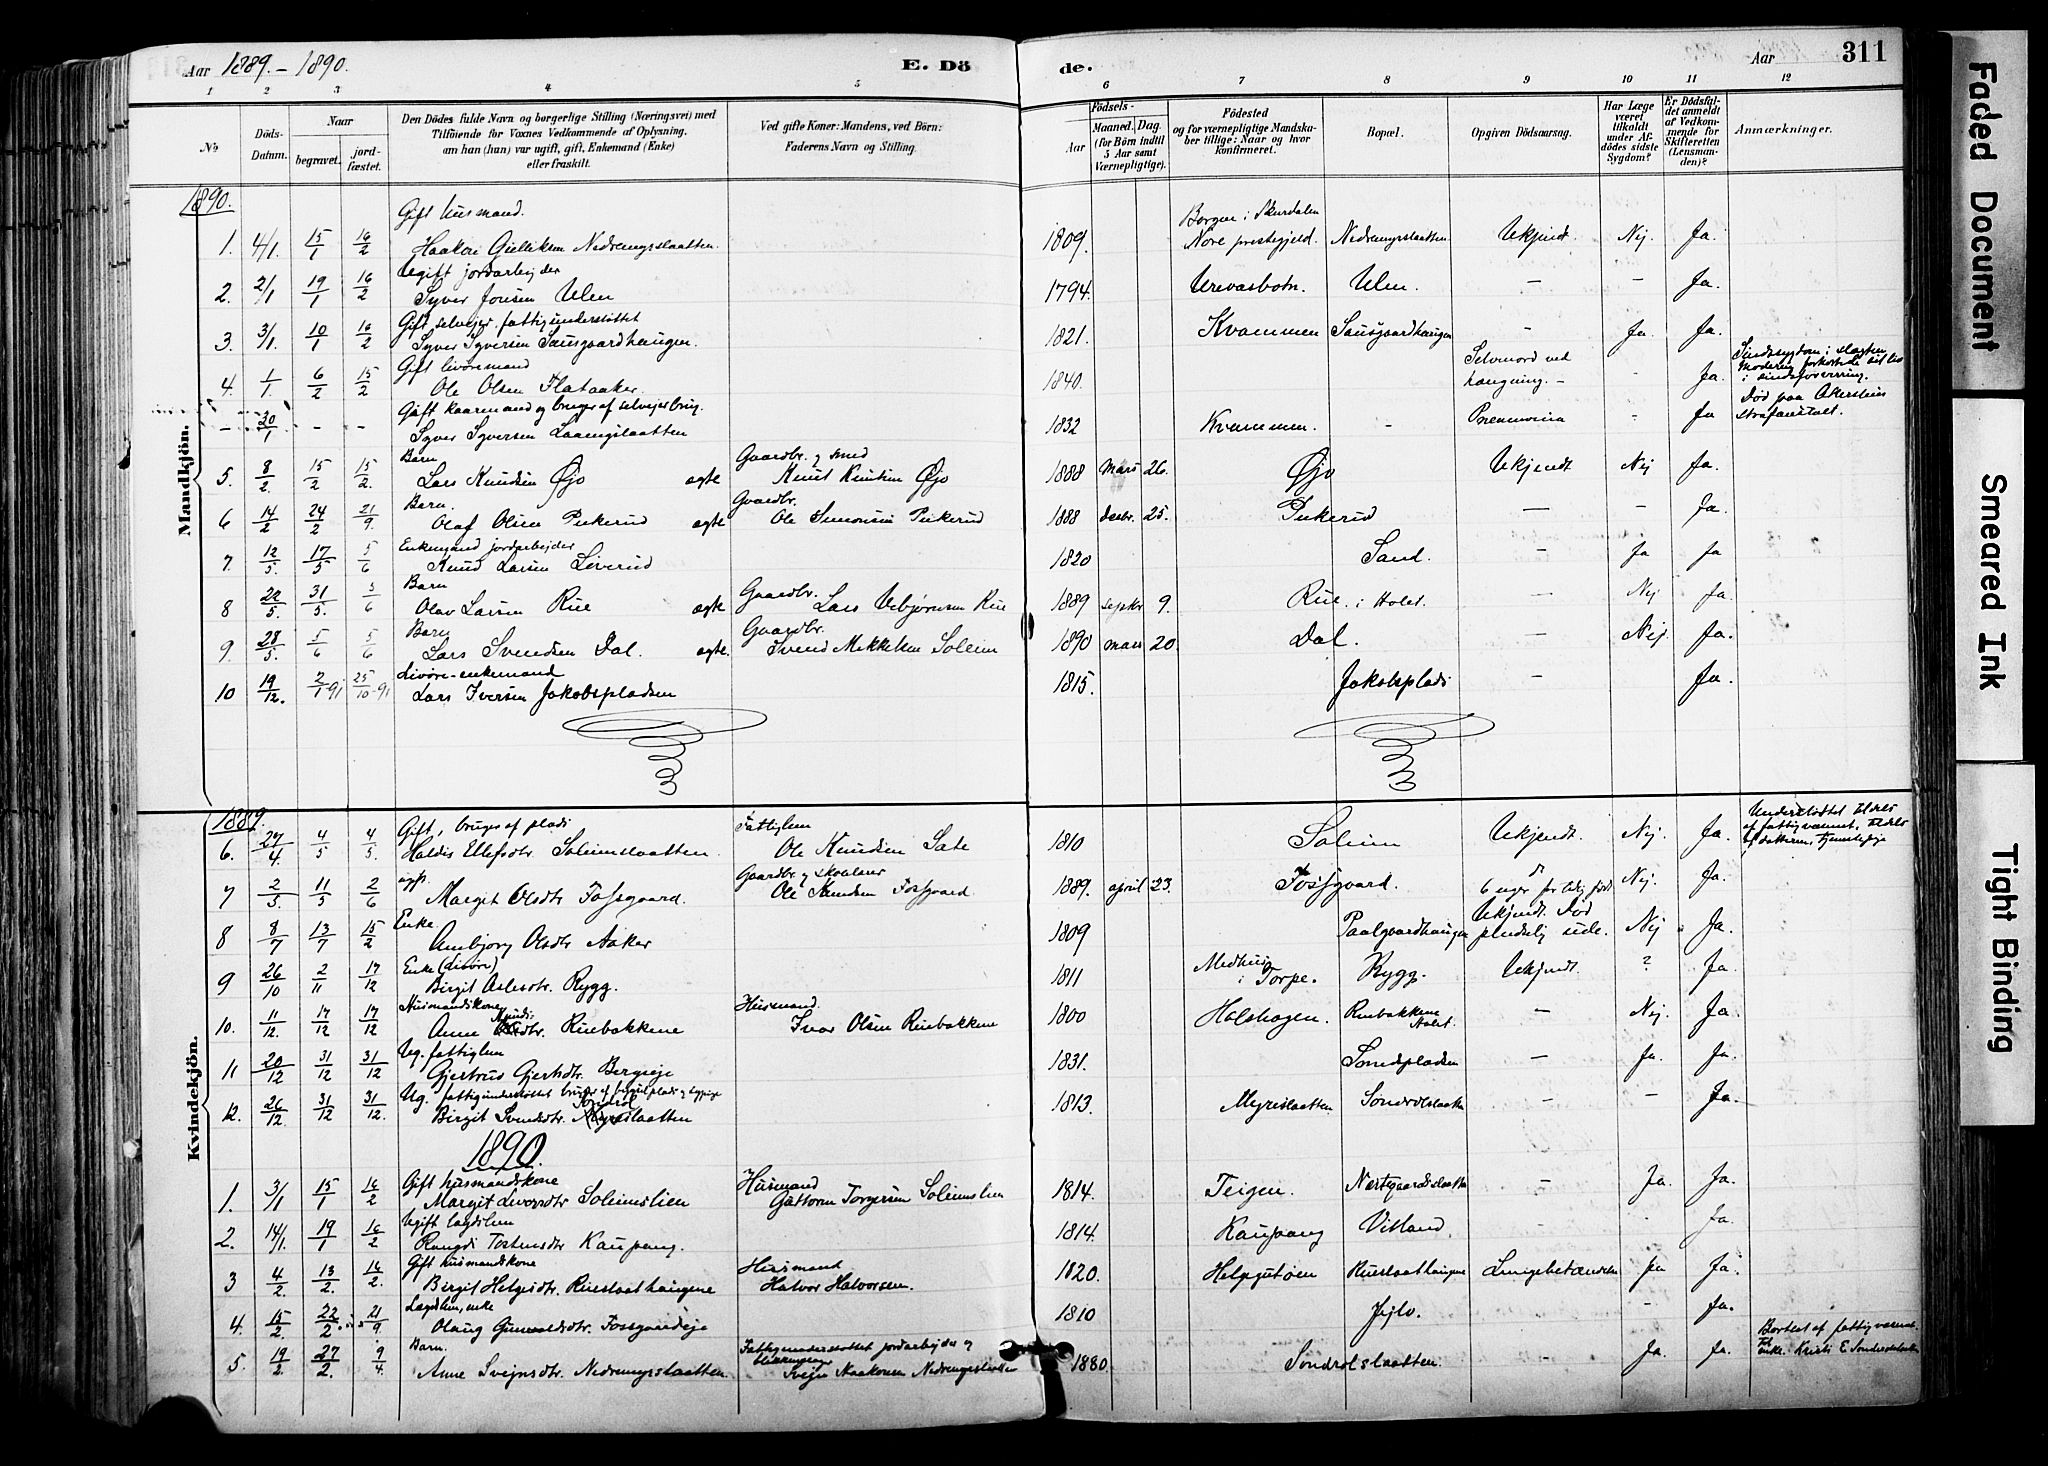 Aar 1889.-1890.
E. Dö
de.
Aar
311
1 2 3 4 5 6 7 8 9 10 11 12
No
Döds-Datum.
Naar
begravet.
jordfæstet.
Den Dödes fulde Navn og borgerlige Stilling (Næringsvei) med
Tilföiende for Voxnes Vedkommende af Oplysning,
om han (hun) var ugift, gift, Enkemand (Enke)
eller fraskilt.
Ved gifte Koner: Mandens, ved Börn:
Faderens Navn og Stilling.
Födsels-
Aar
Maaned. Dag.
(for Börn indtil
5 Aar samt
Værnepligtige).
Födested
og for værnepligtige Mandska-
ber tillige: Naar og hvor
konfirmeret.
Bopæl.
Opgiven Dödsaarsag.
Har Læge
været
tilkaldt
under Af-
dödes sidste
Sygdom?
Er Dödsfal-
det anmeldt
af Vedkom-
mende for
Skifteretten
(Lensman-
den)?
Anmærkninger.
Mandkjön.
1890.
Gift husmand. Borgen i Skurdalen
1. 4/1. 15/1 16/2 Haakon Gulliksen Nedrengsslaatten. 1809. Nore prestegjeld. Nedrengsslaatten Ukjendt. Nej. Ja.
Ugift jordarbejder
2. 2/1 19/1 16/2 Syver Jonsen Ulen 1794. Urevasbotn. Ulen. — — Ja.
Gift, selvejer, fattigunderstøttet
3. 3/1. 10/1 16/2 Syver Syversen Sausgaardhaugen. 1821. Kvammen Sausgaardhaugen — Ja. Ja.
Gift livøremand Selvmord ved Sindssygdom i slægten
4. 1/1. 6/2 15/2 Ole Olsen Flataaker. 1840. hængning. — - Ja. i sindsforvirring.
Gift kaarmand og bruger af selvejerbrug. Død paa Akershus
— 20/1 - - Syver Syversen Laamgslaatten 1832 Kvammen. - Pneumonia - Ja strafanstalt.
Barn Gaardbr. og smed
5. 8/2. 15/2 15/2. Lars Knudsen Øjo ægte Knut Knutsen Øjo 1888 Mars 26. Øjo Ukjendt Nej Ja.
Barn. Gaardbr.
6 14/2 24/2 21/9. Olaf Olsen Pukerud ægte Ole Simonsen Pukerud 1888 decbr. 25. Pukerud — — Ja.
Enkemand jordarbejder
7. 12/5. 17/5 5/6 Knud Larsen Leverud 1820 Sand. — Ja Ja
Barn Gaardbr.
8 22/5. 31/5. 5/6 Olav Larsen Rue ægte Lars Vebjørnsen Rue 1889 septbr 9. Rue i Holet. — Nej Ja.
Barn Gaardbr.
9. 28/5. 5/6 5/6 Lars Svendsen Dal. ægte. Svend Mikkelsen Soleim 1890 mars 20. Dal. — Nej. Ja.
Livøre-enkemand
10 19/12. 2/1 91 25/10-91 Lars Iversen Jakobspladsen 1815. Jakobsplads — Ja.
Kvindekjön.
1889.
Gift, bruger af plads Fattiglem Understøttet tildels
6. 27/4. 4/5 4/5. Haldis Ellefsdtr. Soleimslaatten. Ole Knudsen Sate 1810 Soleim Ukjendt. Nej. Ja. af fattigvæsenet, tildels
ugft. Gaardbr. og skolelærer do
7 2/5. 11/5 2/6 Margit Olsdtr Fossgaard. Ole Knudsen Fossgaard 1889. april 23. Fossgaard. 6 uger for tidlig født Nej. Ja.
Enke Ukjendt. Død
8 8/7 13/7 15/2 Ambjorg Olsdtr Aaker 1809 Paalgaardhaugen pludselig ude. Nej Ja.
Enke (Livøre) Medhus
9 26/10 2/11 17/12 Birgit Aslesdtr. Rygg. 1811 i Torpe. Rygg. Ukjendt. ? Ja.
Husmandskone Husmand.
10. 11/12. 17/12 17/12 Anne Knudsdtr. Ruebakkene Ivar Olsen Ruebakkene 1800 Holshagen. Ruebakkene Holet. — Nej. Ja.
Ug. fattiglem
11 20/12 31/12 31/12 Gjertrus Gjertsdtr. Bergseje 1831. Sandpladsen — Ja. Ja.
12. 26/12. 31/12 31/12. Birgit Svendsdtr. slaatten 1813. Myreslaatten Søndrolslaatten — — Ja.
1890.
Gift husmandskone Husmand
1. 3/1 15/1 16/2 Margit Liversdtr Soleimslien Guttorm Torgersen Soleimslien 1814. Teigen. Nærtgaardslaatten — Ja. Ja.
Ugift lægdslem
2. 14/1. 19/1 16/2 Rangdi Tostensdtr Kaupang. 1814. Kaupang Villand. — - Ja.
Gift husmandskone Husmand
3 4/2 13/2. 16/2. Birgit Helgesdtr. Rueslaathaugene Halvor Halvorsen. 1820. Helggutøen Rueslaathaugene Lungebetændelse Ja Ja.
Lægdslem, enke
4. 15/2. 22/2. 21/9 Olaug Gunvaldsdtr. Fossgaardeje 1810 Jejlo. - Ja.
Barn. Fattigunderstøttet jordarbejder og Bortsat af fattigvæsenet
5. 19/2 27/2. 9/4 Anne Svejnsdtr. Nedrengsslaatten. Svejn Haakonsen Nedrengsslaatten 1880 Søndrolslaatten. — Ja. Ja. enke Kristi E. Søndrolslaatten
Faded Document
Smeared Ink
Tight Binding